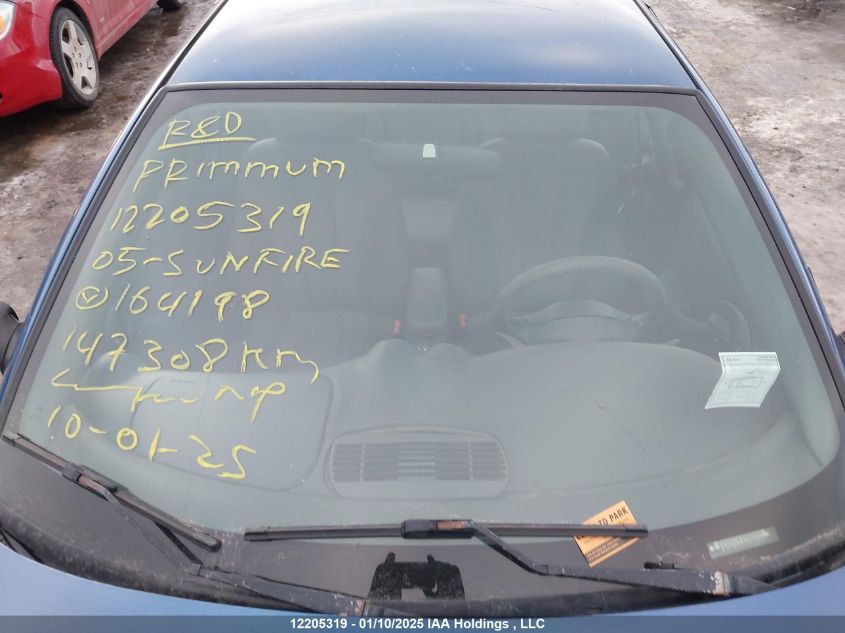 R&D
PRIMMUM
12205319
05-SUNFIRE
164198
147308 Km
10-01-25
TO PARK
12205319 - 01/10/2025 IAA Holdings , LLC